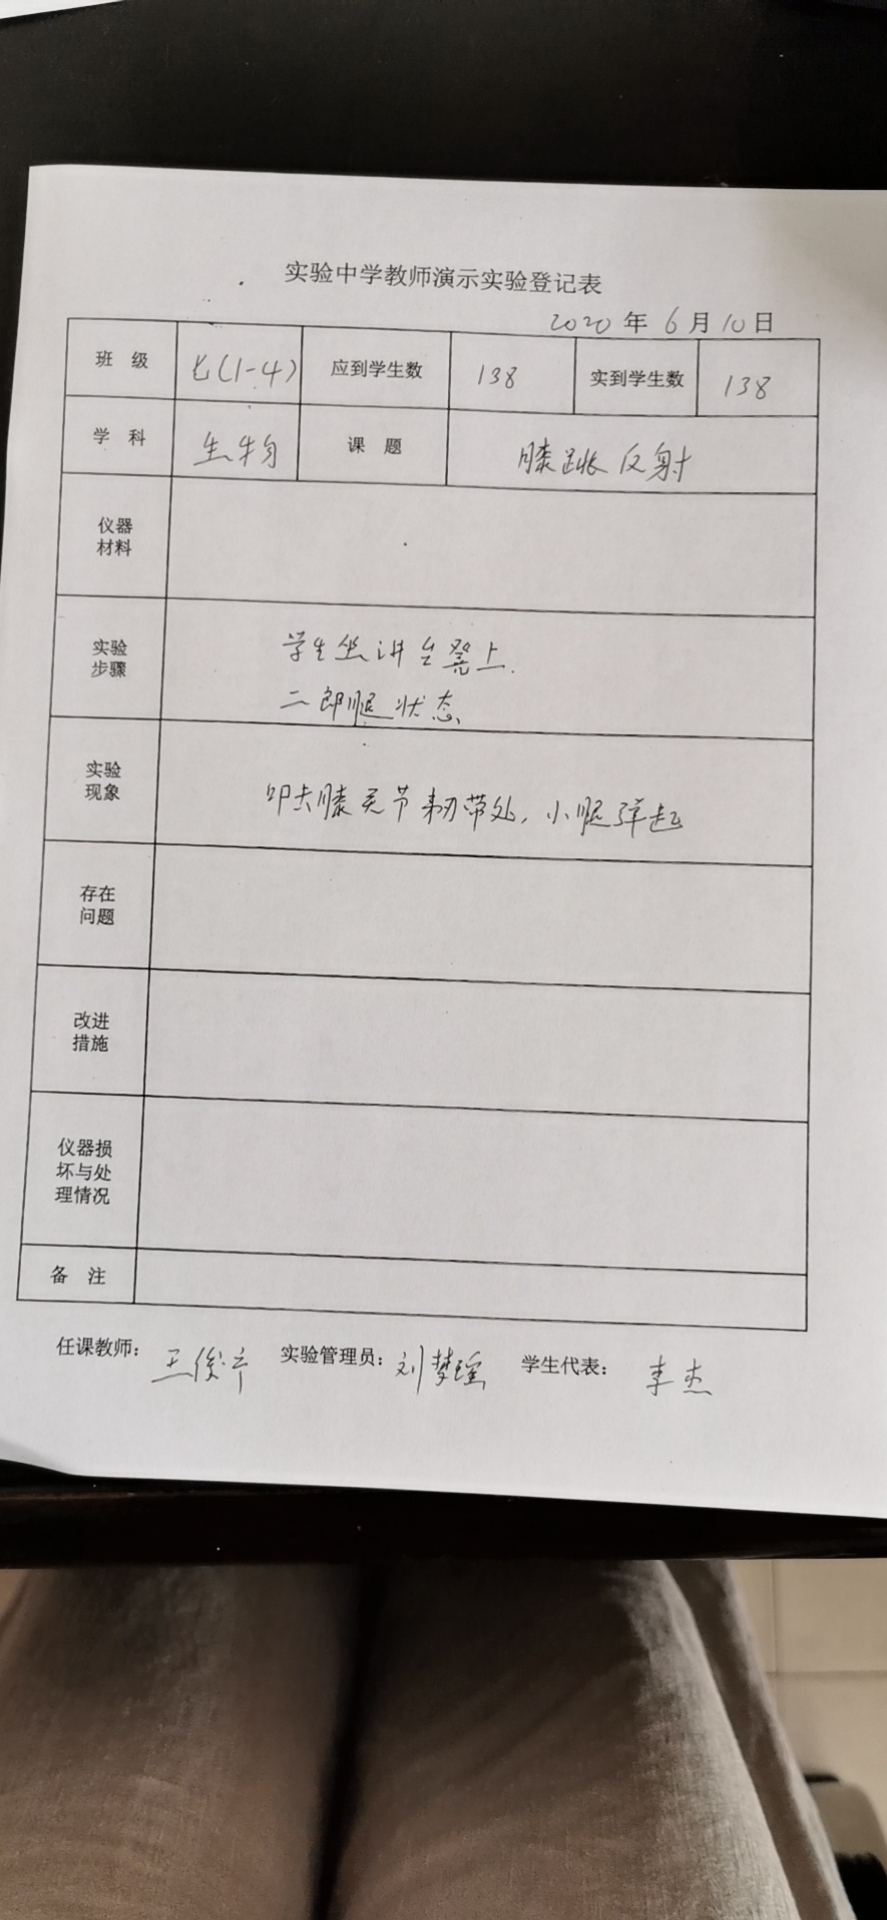 实验中学教师演示实验登记表
2020 年 6 月 10 日
班 级 七(1-4) 应到学生数 138 实到学生数 138
学 科 生物 课 题 膝跳反射
仪器
材料
实验
步骤
学生坐讲台凳上.
二郎腿状态
实验
现象
叩击膝关节韧带处,小腿弹起
存在
问题
改进
措施
仪器损
坏与处
理情况
备 注
任课教师: 王俊 实验管理员: 刘梦瑶 学生代表: 李杰